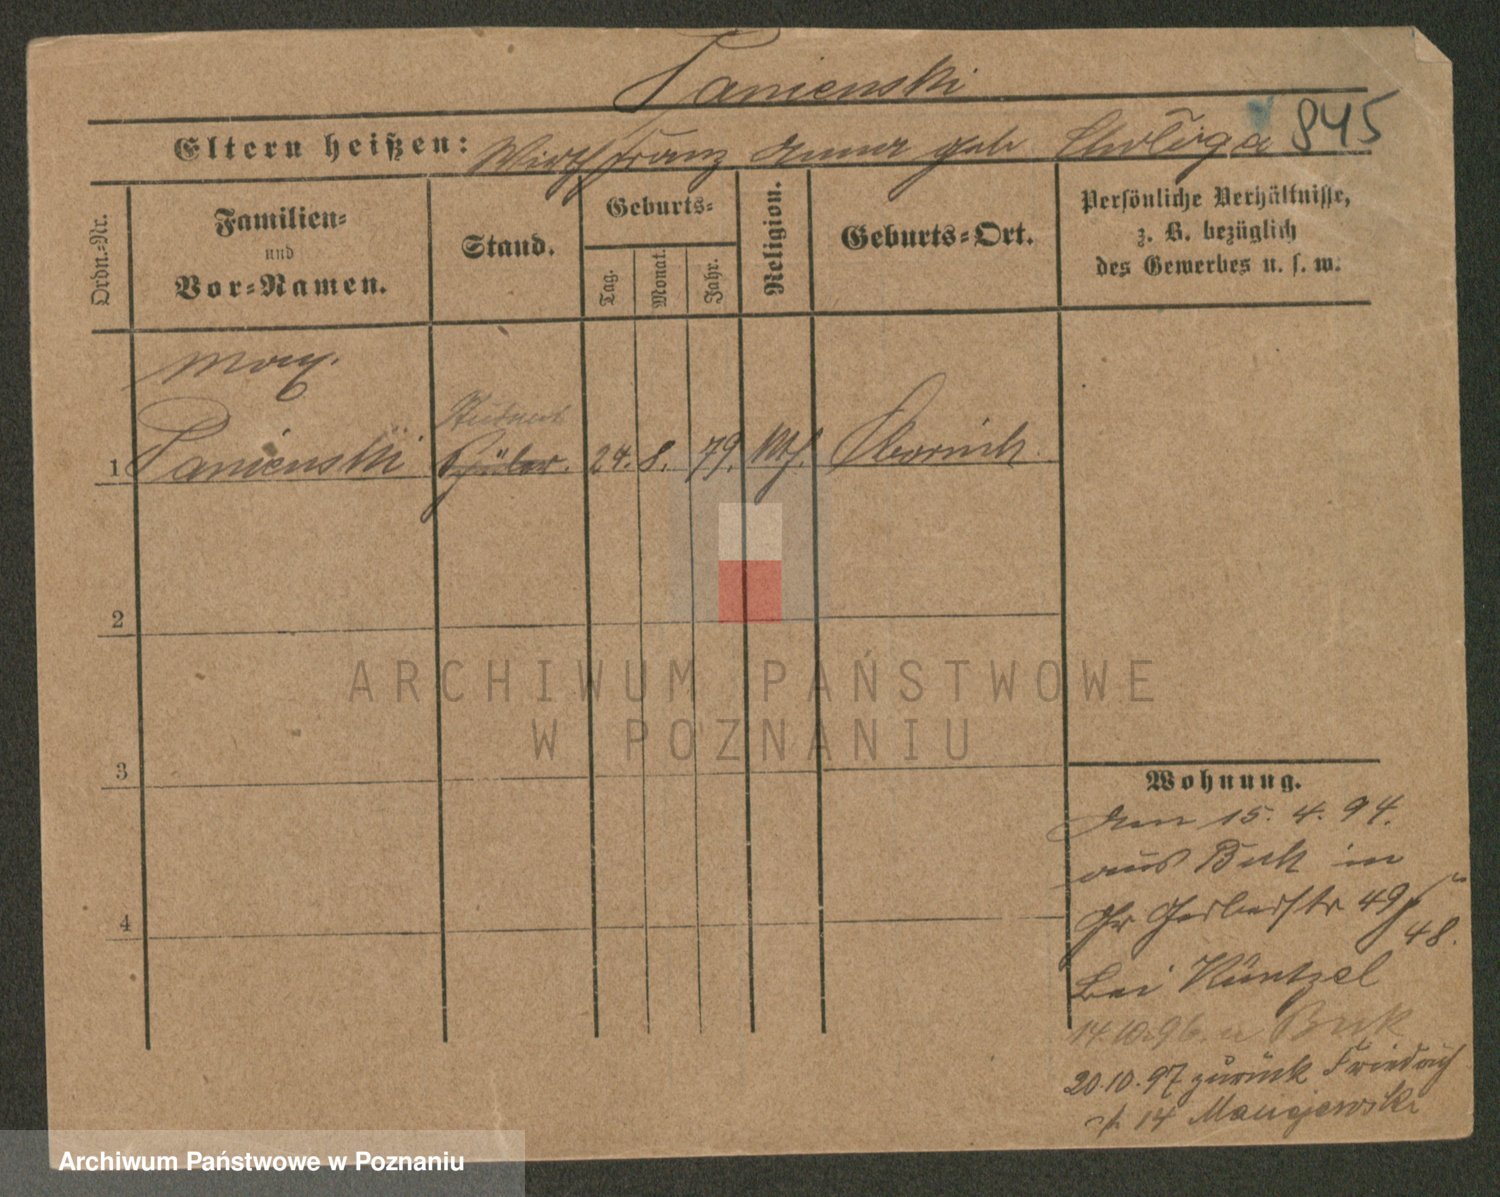 Panienski
Eltern heißen: Wirth Franz Anna geb
845
Ordn.-Nr.
Familien-
und
Vor-Namen.
Stand.
Geburts-
Tag.
Monat.
Jahr.
Religion.
Geburts-Ort.
Persönliche Verhältnisse,
z. B. bezüglich
des Gewerbes u. s. w.
Student
1 Panienski Schüler. 24. 8. 79. Obornik.
2
3
4
Wohnung.
15. 4. 94.
aus Buk in
Gr Gerberstr 49
48.
bei Küntzel
14.10.96. n Buk
20.10.97 zurück Friedrich
14
ARCHIWUM PAŃSTWOWE
W POZNANIU
Archiwum Państwowe w Poznaniu